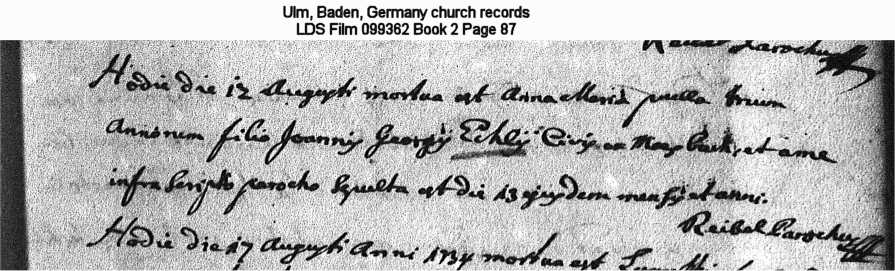 Ulm, Baden, Germany church records
LDS Film 099362 Book 2 Page 87
Reibel Parochus
Hodie die 12 Augusti mortua est Anna Maria puella trium
Annorum filia Joannis Georgij Echlij Civis ex et a me
infra scripto parocho sepulta est die 13 ejusdem mensis et anni.
Reibel Parochus
Hodie die 17 Augusti Anni 1734 mortua est